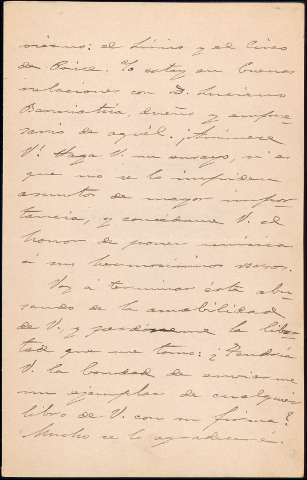 verano: el Lírico y el Circo
de Price. Yo estoy en buenas
relaciones con D. Luciano
Berriatúa, dueño y empre-
sario de aquél. ¡Anímese
V! Haga V. un ensayo, si es
que no se lo impiden
asuntos de mayor impor-
tancia, y concédame V. el
honor de poner música
á sus hermosísimos versos.
Voy á terminar ésta abu-
sando de la amabilidad
de V. y perdóneme la liber-
tad que me tomo: ¿Tendría
V. la bondad de enviarme
un ejemplar de cualquier
libro de V. con su firma?
Mucho se lo agradeceré.